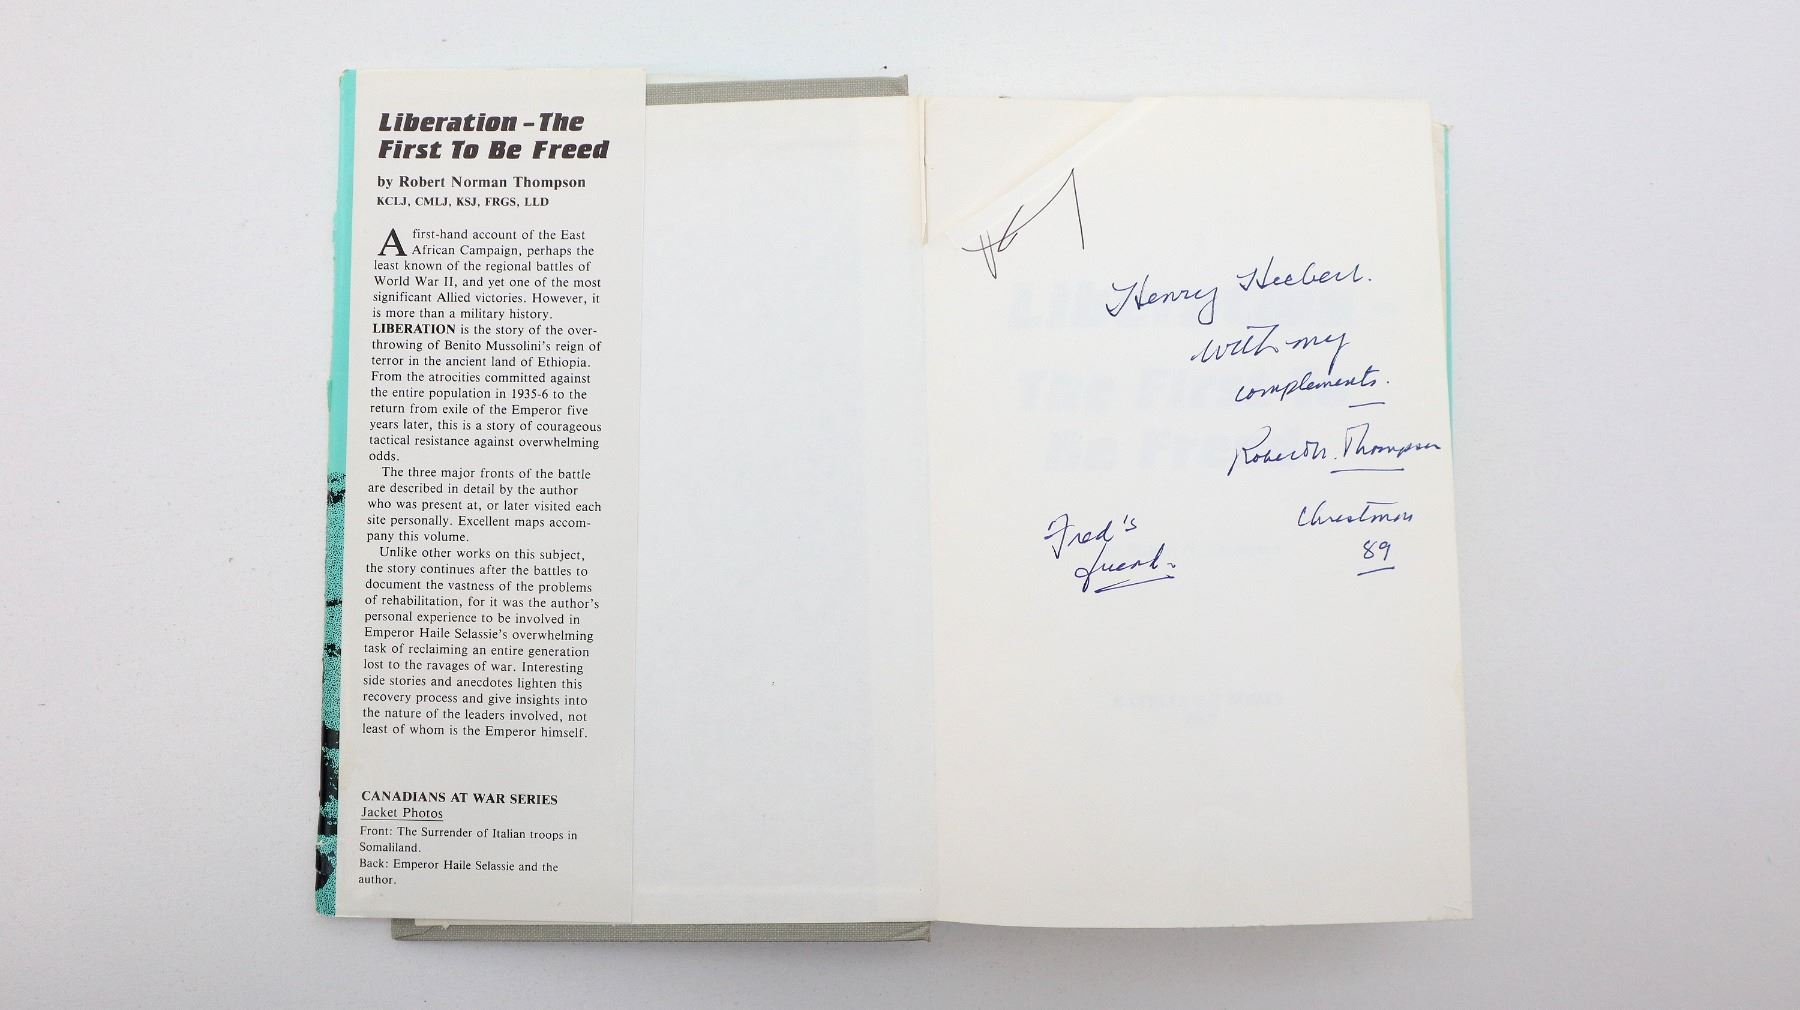 Liberation – The
First To Be Freed
by Robert Norman Thompson
KCLJ, CMLJ, KSJ, FRGS, LLD
A first-hand account of the East
African Campaign, perhaps the
least known of the regional battles of
World War II, and yet one of the most
significant Allied victories. However, it
is more than a military history.
LIBERATION is the story of the over-
throwing of Benito Mussolini's reign of
terror in the ancient land of Ethiopia.
From the atrocities committed against
the entire population in 1935-6 to the
return from exile of the Emperor five
years later, this is a story of courageous
tactical resistance against overwhelming
odds.
The three major fronts of the battle
are described in detail by the author
who was present at, or later visited each
site personally. Excellent maps accom-
pany this volume.
Unlike other works on this subject,
the story continues after the battles to
document the vastness of the problems
of rehabilitation, for it was the author's
personal experience to be involved in
Emperor Haile Selassie's overwhelming
task of reclaiming an entire generation
lost to the ravages of war. Interesting
side stories and anecdotes lighten this
recovery process and give insights into
the nature of the leaders involved, not
least of whom is the Emperor himself.
CANADIANS AT WAR SERIES
Jacket Photos
Front: The Surrender of Italian troops in
Somaliland.
Back: Emperor Haile Selassie and the
author.
Henry
with my
complements.
Robert N. Thompson
Christmas
89
Fred's
friend.